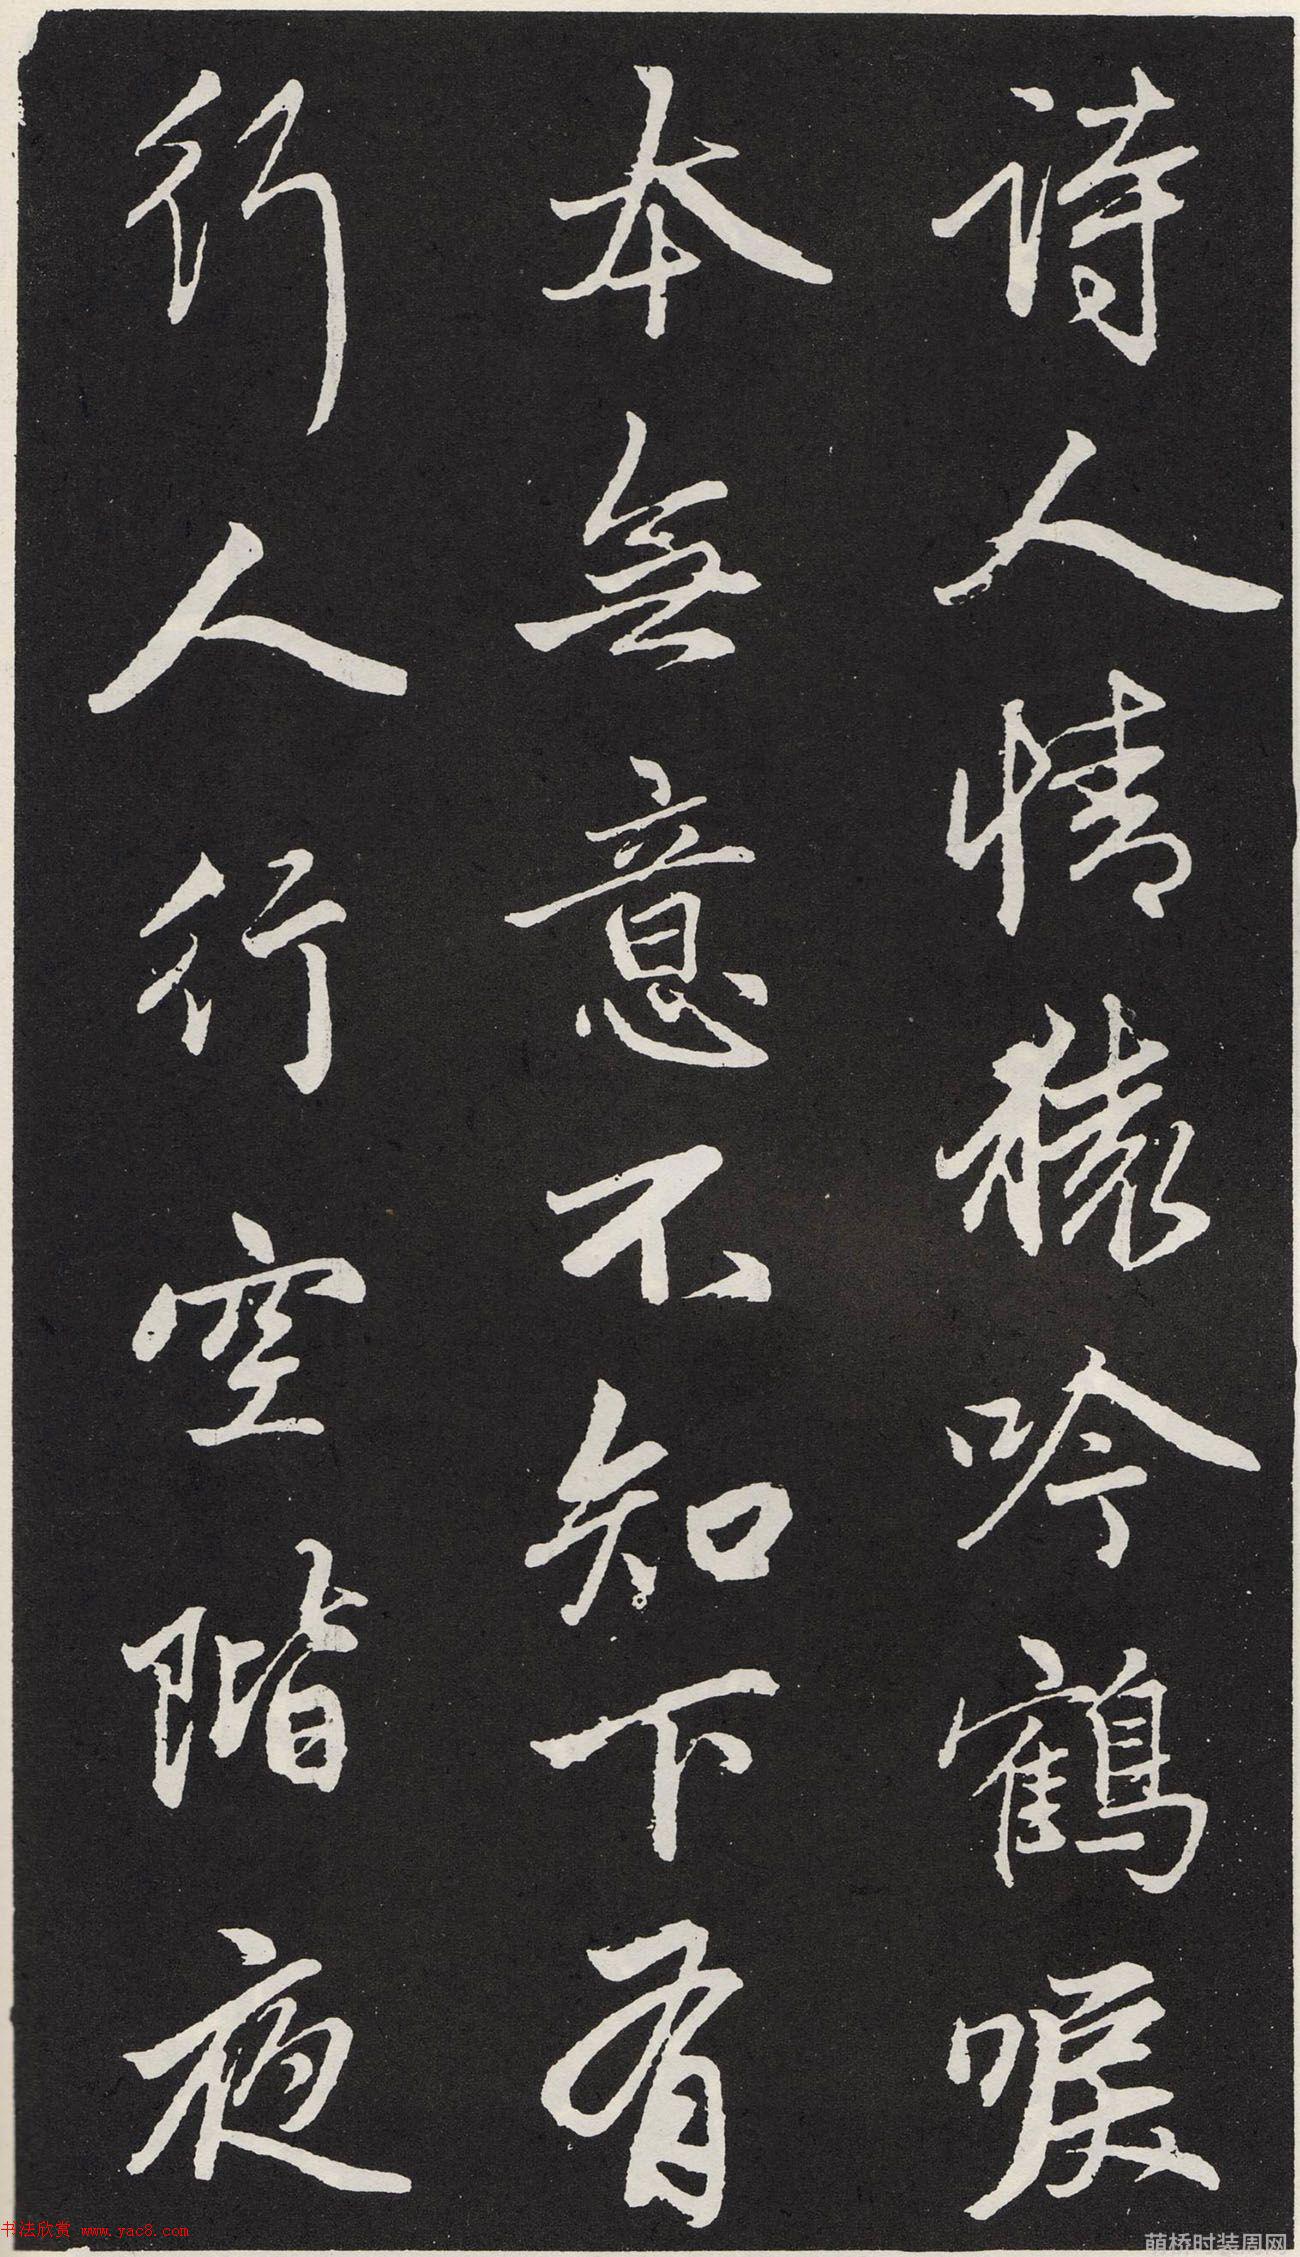 诗人情猿吟鹤唳
本無意不知下有
行人行空階夜
书法欣赏 www.yac8.com
萌桥时装周网